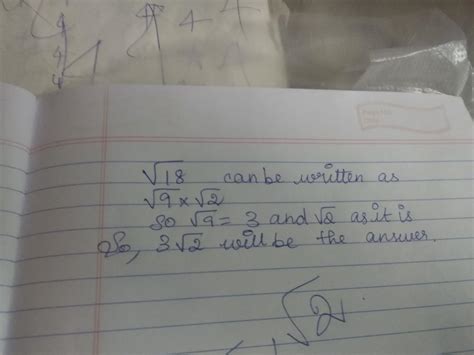 4 4
4
4
√18 can be written as
√9 × √2
so √9 = 3 and √2 as it is
So, 3√2 will be the answer.
√2